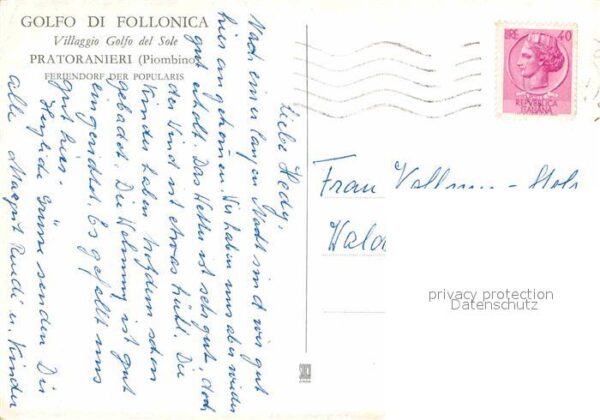 GOLFO DI FOLLONICA
Villaggio Golfo del Sole
PRATORANIERI (Piombino)
FERIENDORF DER POPULARIS
Liebe Hedy,
Nach einer langen Nacht sind wir gut
hier angekommen. Wir haben uns aber wieder
gut erholt. Das Wetter ist sehr gut, doch
der Wind ist etwas kühl. Die
Kinder haben trotzdem schon
gebadet. Die Wohnung ist gut
eingerichtet. Es gefällt uns
gut hier.
Herzliche Grüsse senden Dir
alle Margrit Ruedi u. Kinder
LIRE 40
REPVBBLICA
ITALIANA
Frau
privacy protection
Datenschutz